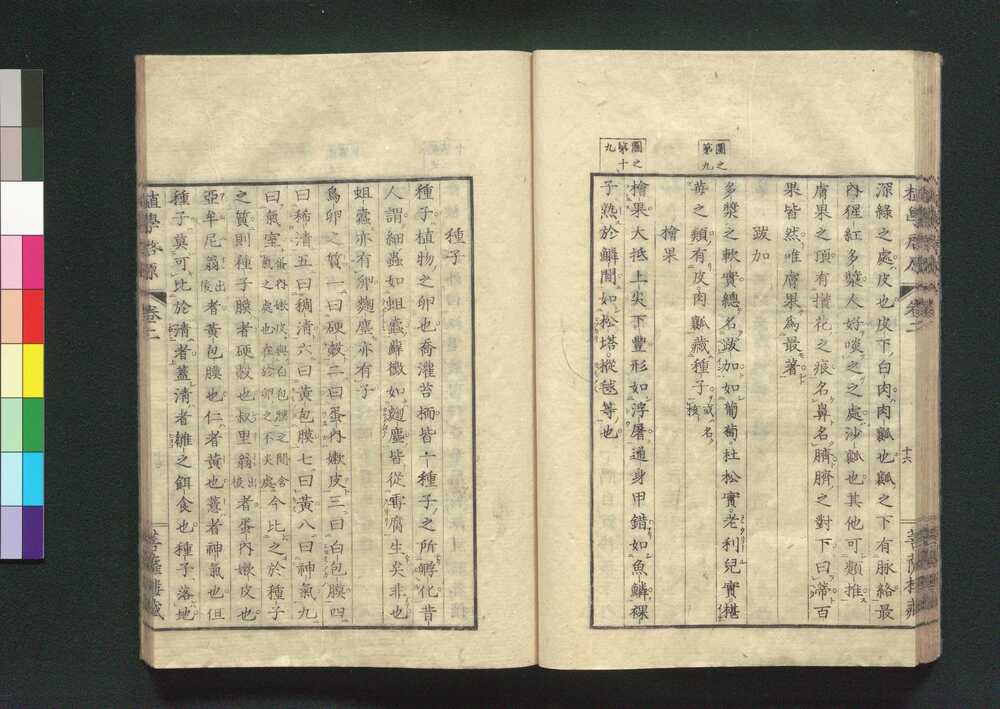 深綠之處皮也皮下白肉肉瓤也瓤之下有脉絡最
內猩紅多漿人好啖之之處沙瓤也其他可類推
膚果之頂有擁花之痕名鼻名臍臍之對下曰蒂百
果皆然唯膚果爲最著
跋加
多漿之軟實總名潑加如葡萄杜松實老利兒實椹
莓之類有皮肉瓤藏種子或名核
圖之第九
檜果
檜果大抵上尖下豐形如浮屠通身甲錯如魚鱗裸
子熟於鱗間如松塔樅毬等也
圖之第十九
種子
種子植物之卵也喬灌苔栭皆十種子之所孵化昔
人謂細蟲如蛆蠹蘚微如麹塵皆從霉腐生矣非也
蛆蠹亦有卵麹塵亦有子
鳥卵之質一曰硬殼二曰蛋內嫩皮三曰白包膜四
曰稀清五曰稠清六曰黃包膜七曰黃八曰神氣九
曰氣室蛋內嫩皮與白包膜之間含氣之處也在於卵之不尖處今比之於種子
之質則種子膜者硬殼也叔里翁出後者蛋內嫩皮也
亞牟尼翁出後者黃包膜也仁者黃也薏者神氣也但
種子莫可比於清者蓋清者雛之餌食也種子落地
植學啓源 卷二
十六
菩薩樓藏